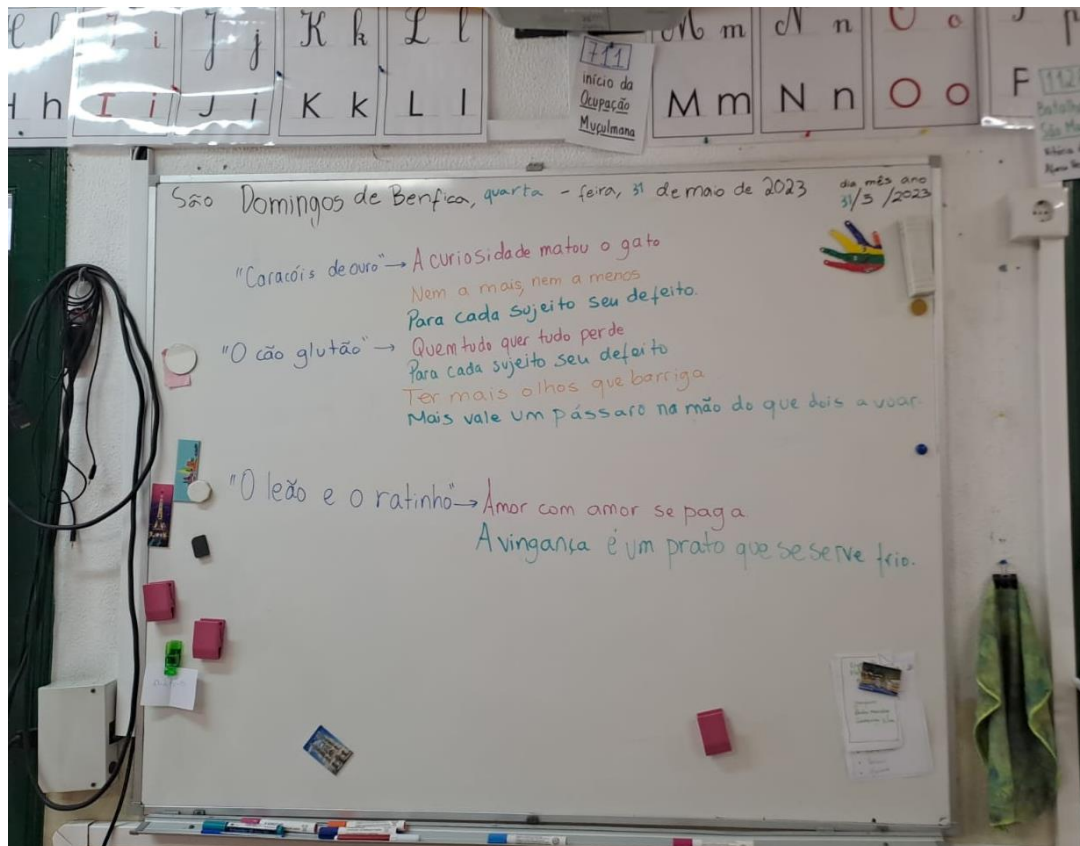 I i
J j
K k
L l
M m
N n
O o
h
I i
J j
K k
L l
M m
N n
O o
F
711
início da
Ocupação
Muçulmana
112
São Domingos de Benfica, quarta - feira, 31 de maio de 2023
dia mês ano
31/5/2023
"Caracóis de ouro" → A curiosidade matou o gato
Nem a mais, nem a menos
Para cada sujeito seu defeito.
"O cão glutão" → Quem tudo quer tudo perde
Para cada sujeito seu defeito
Ter mais olhos que barriga
Mais vale um pássaro na mão do que dois a voar.
"O leão e o ratinho" → Amor com amor se paga
A vingança é um prato que se serve frio.